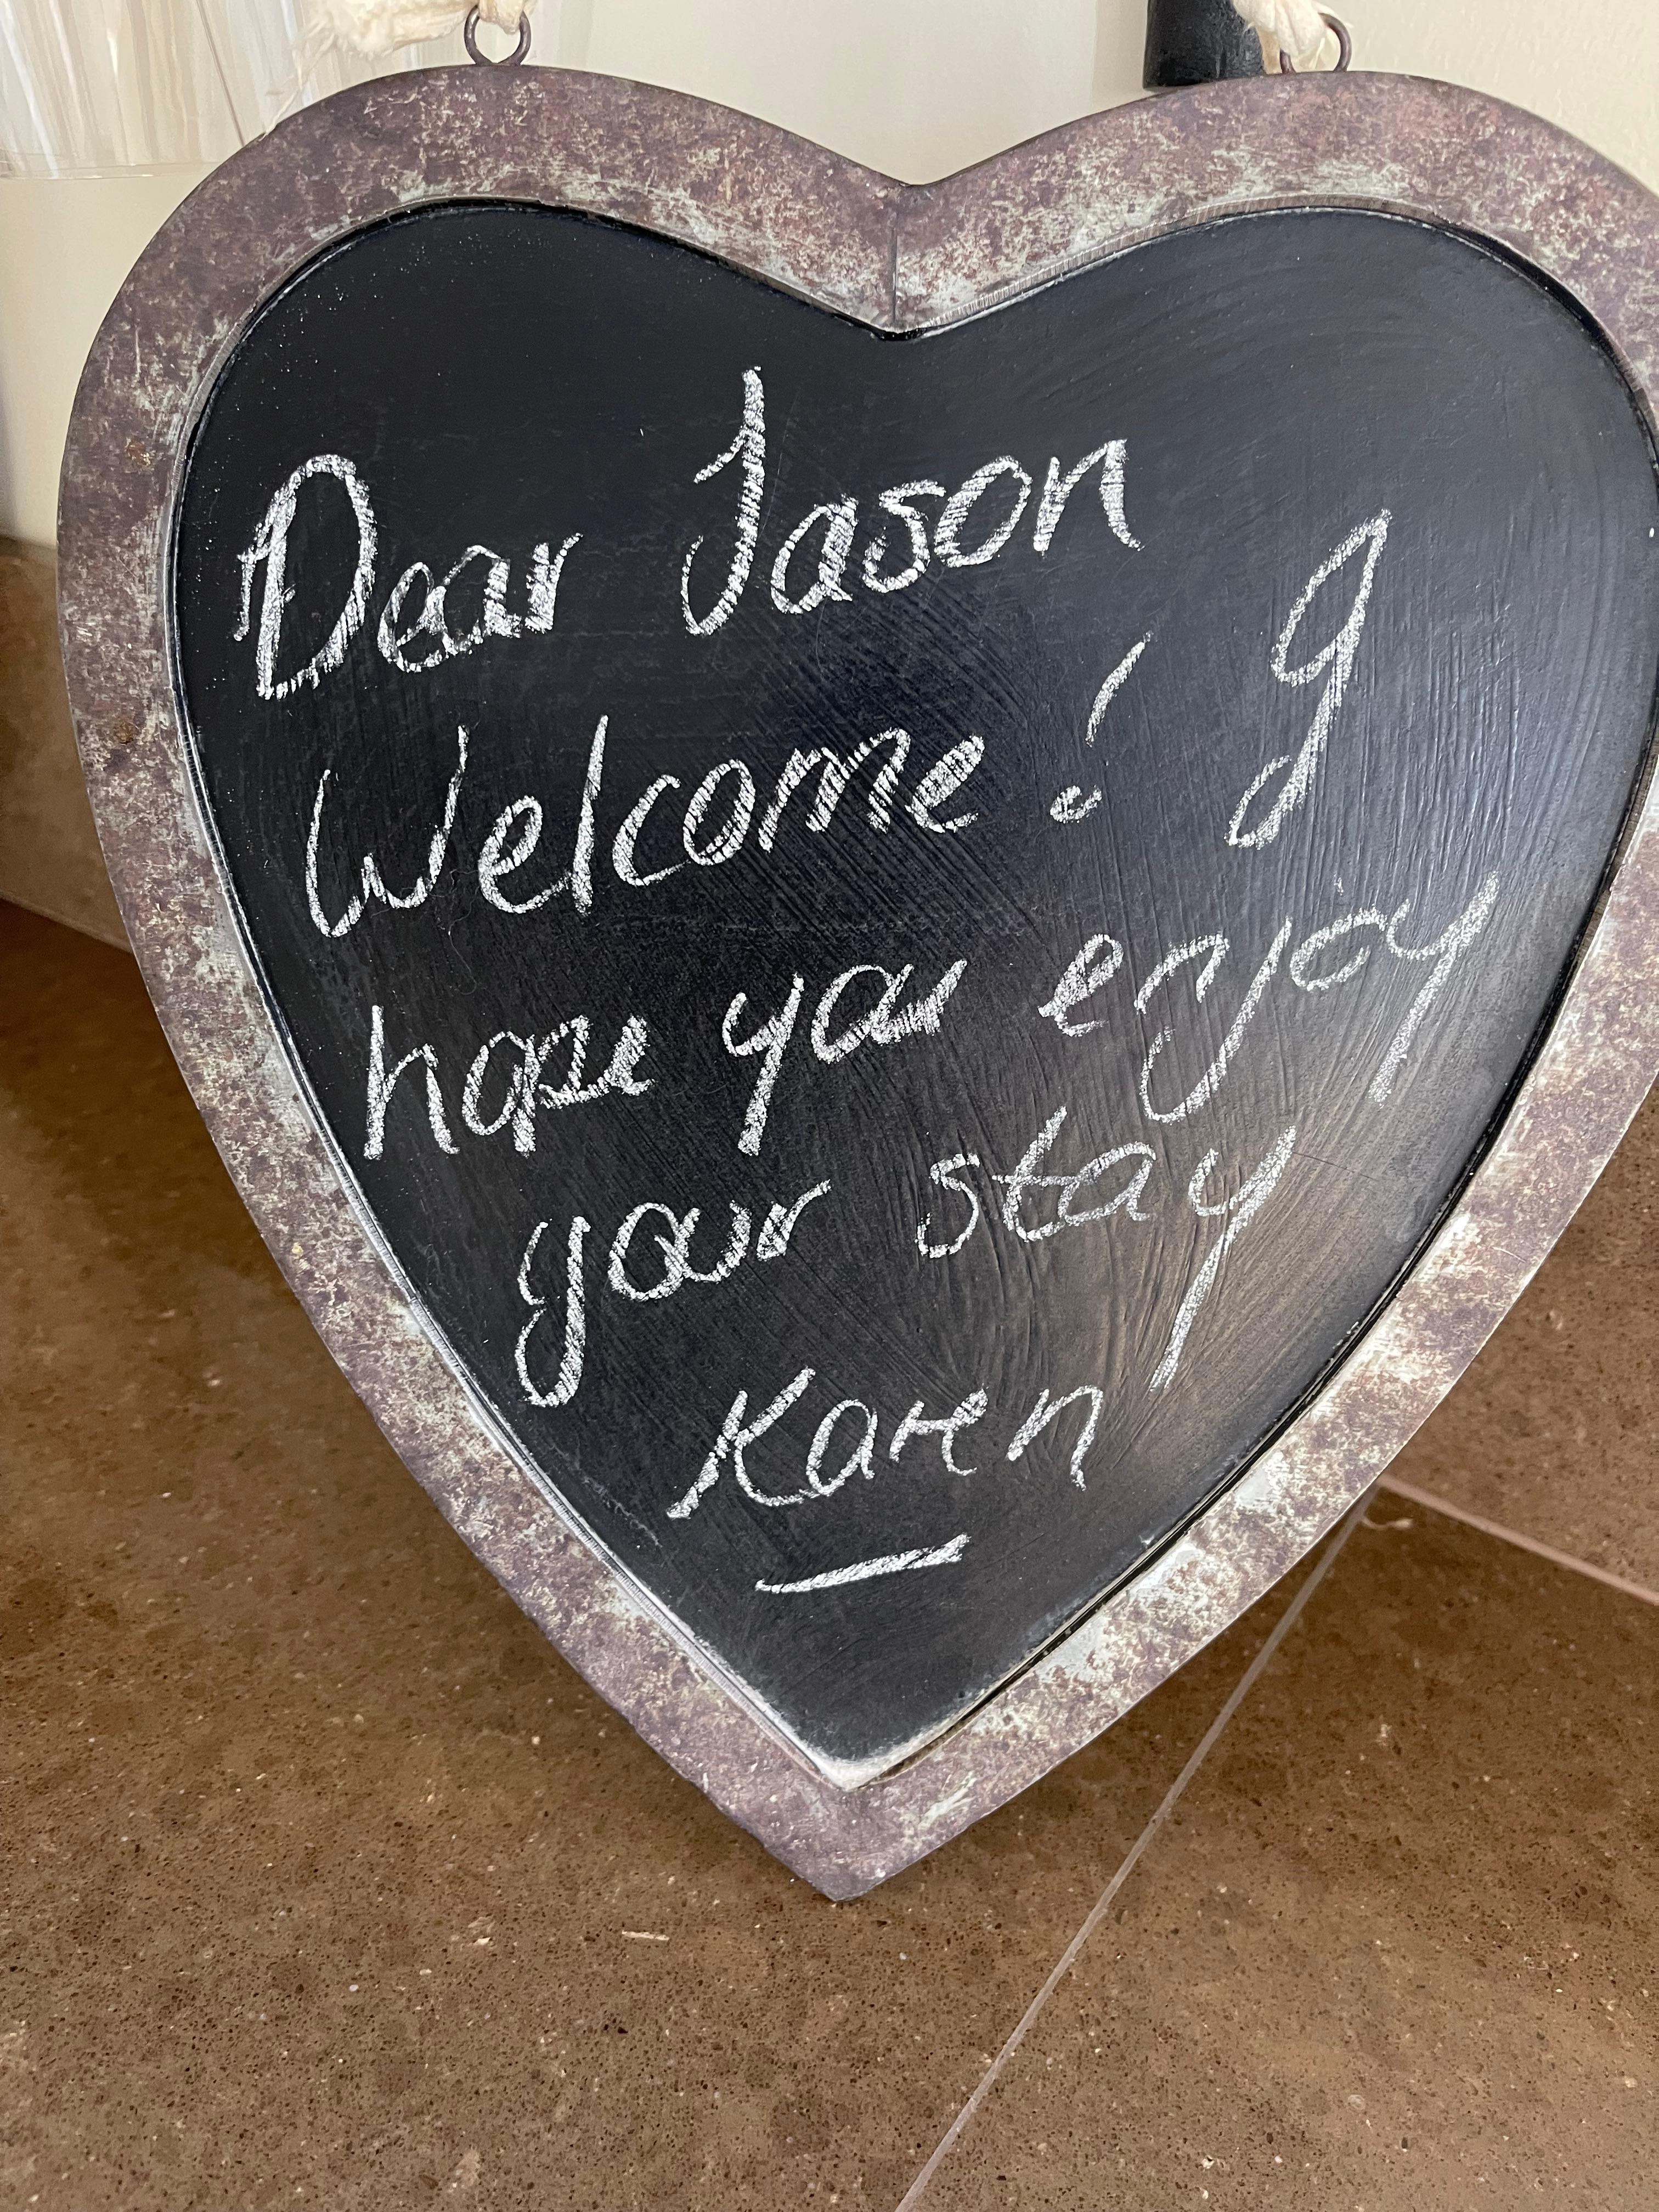 Dear Jason
Welcome! I
hope you enjoy
your stay
Karen